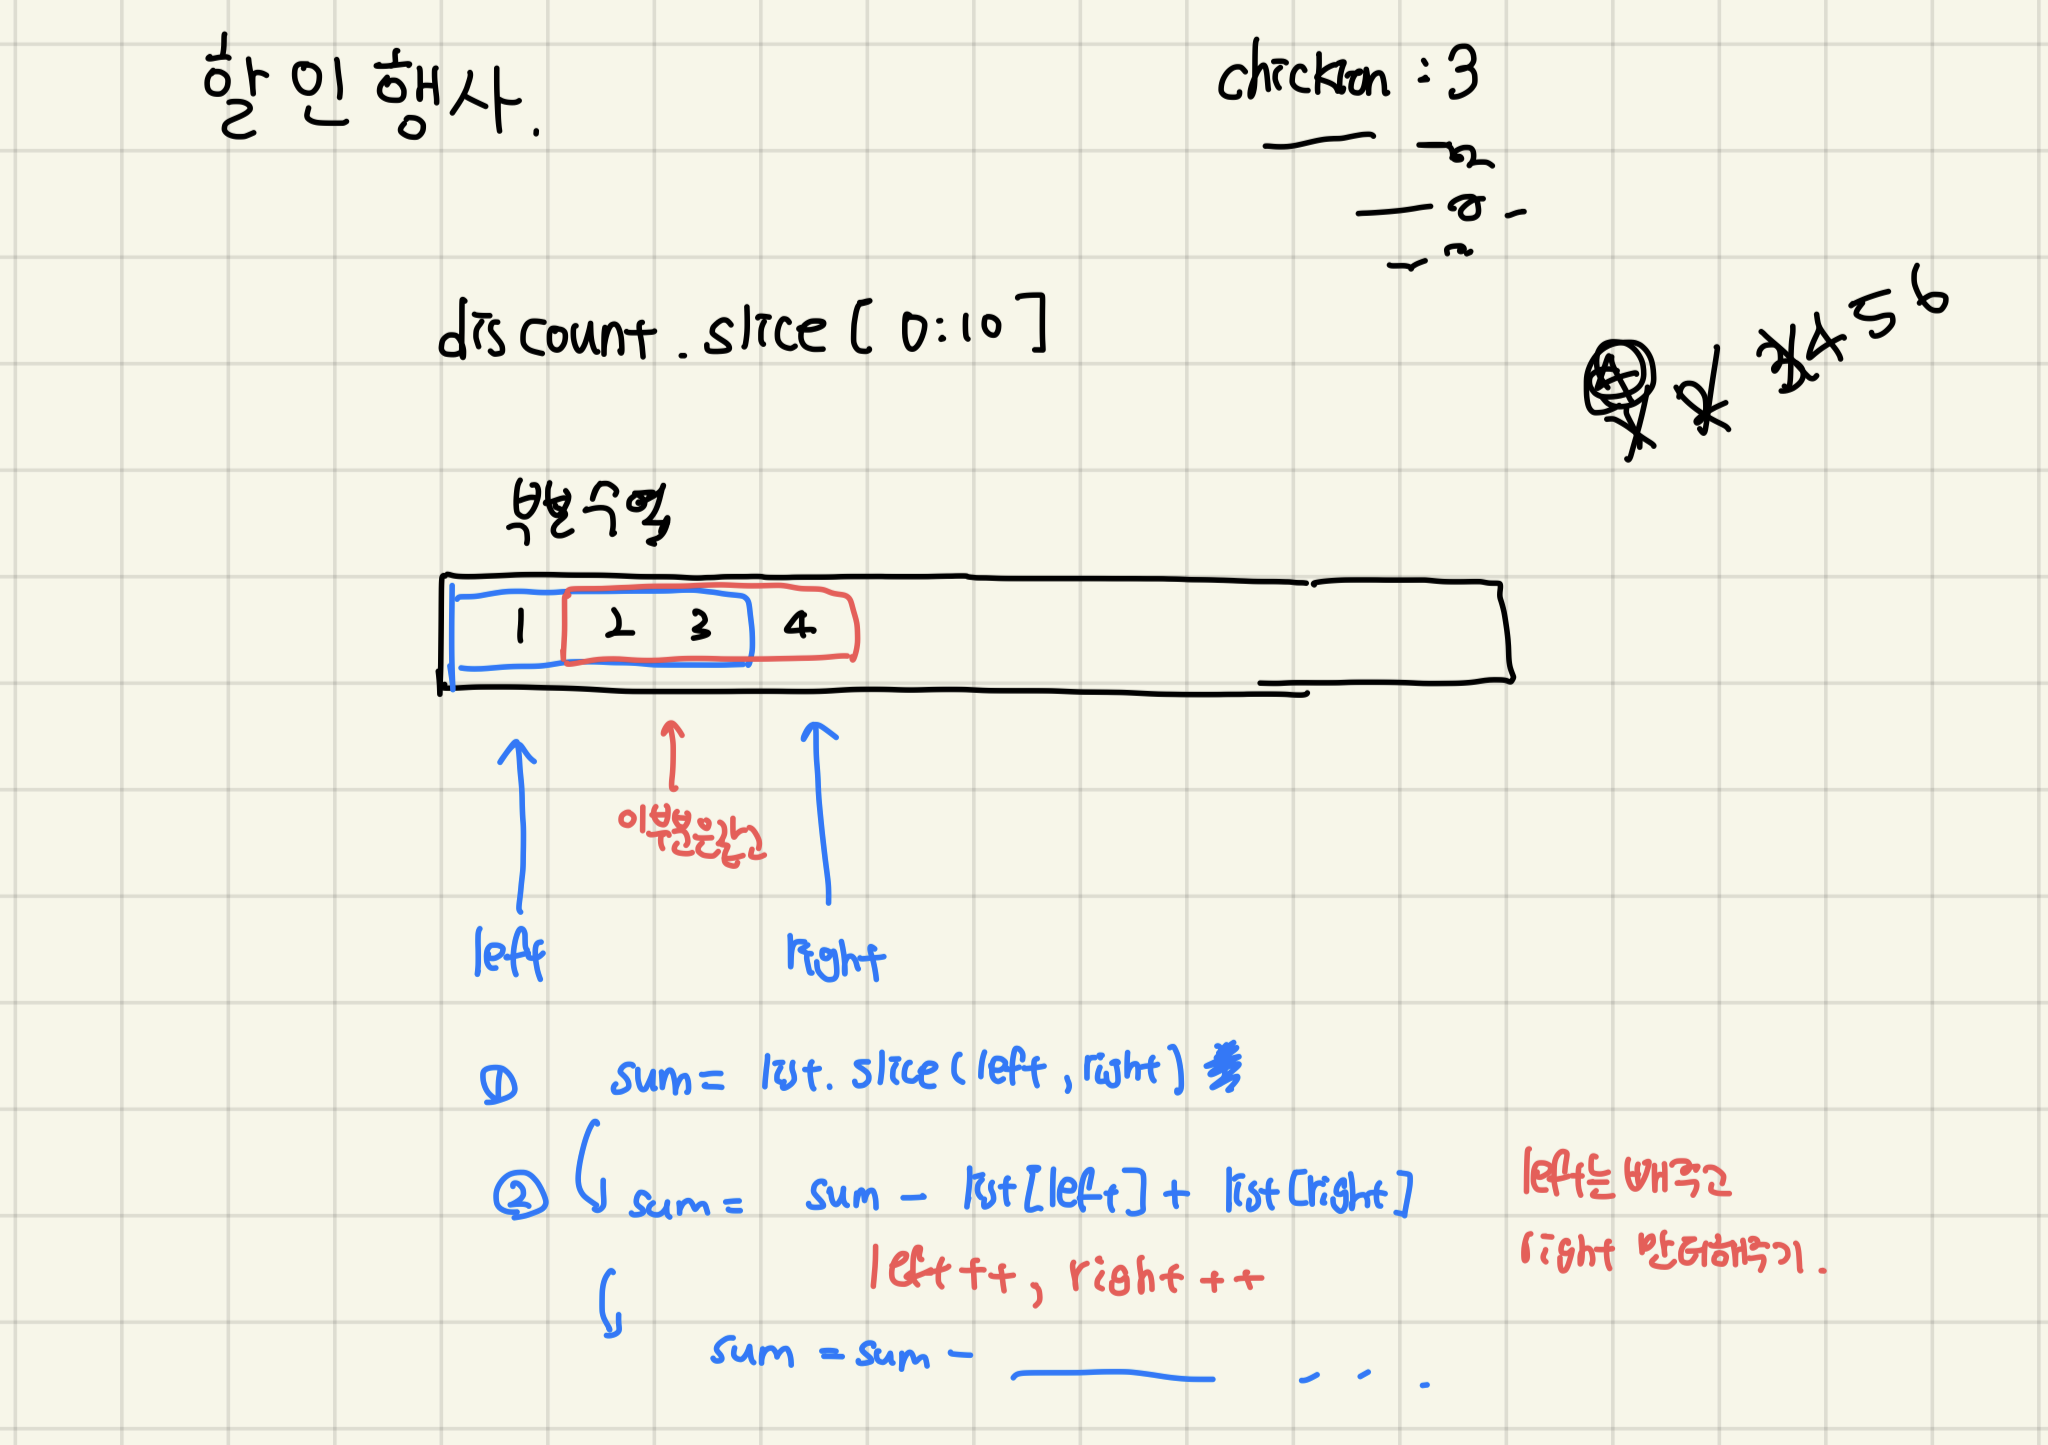 할인행사.
chickan : 3
discount.slice[0:10]
4 5 6
부분수열
1 2 3 4
이부분은같고
left
right
① sum = list.slice(left, right)
② sum = sum - list[left] + list[right]
left++, right++
sum = sum - ...
left는 빼주고
right 만 더해주기.